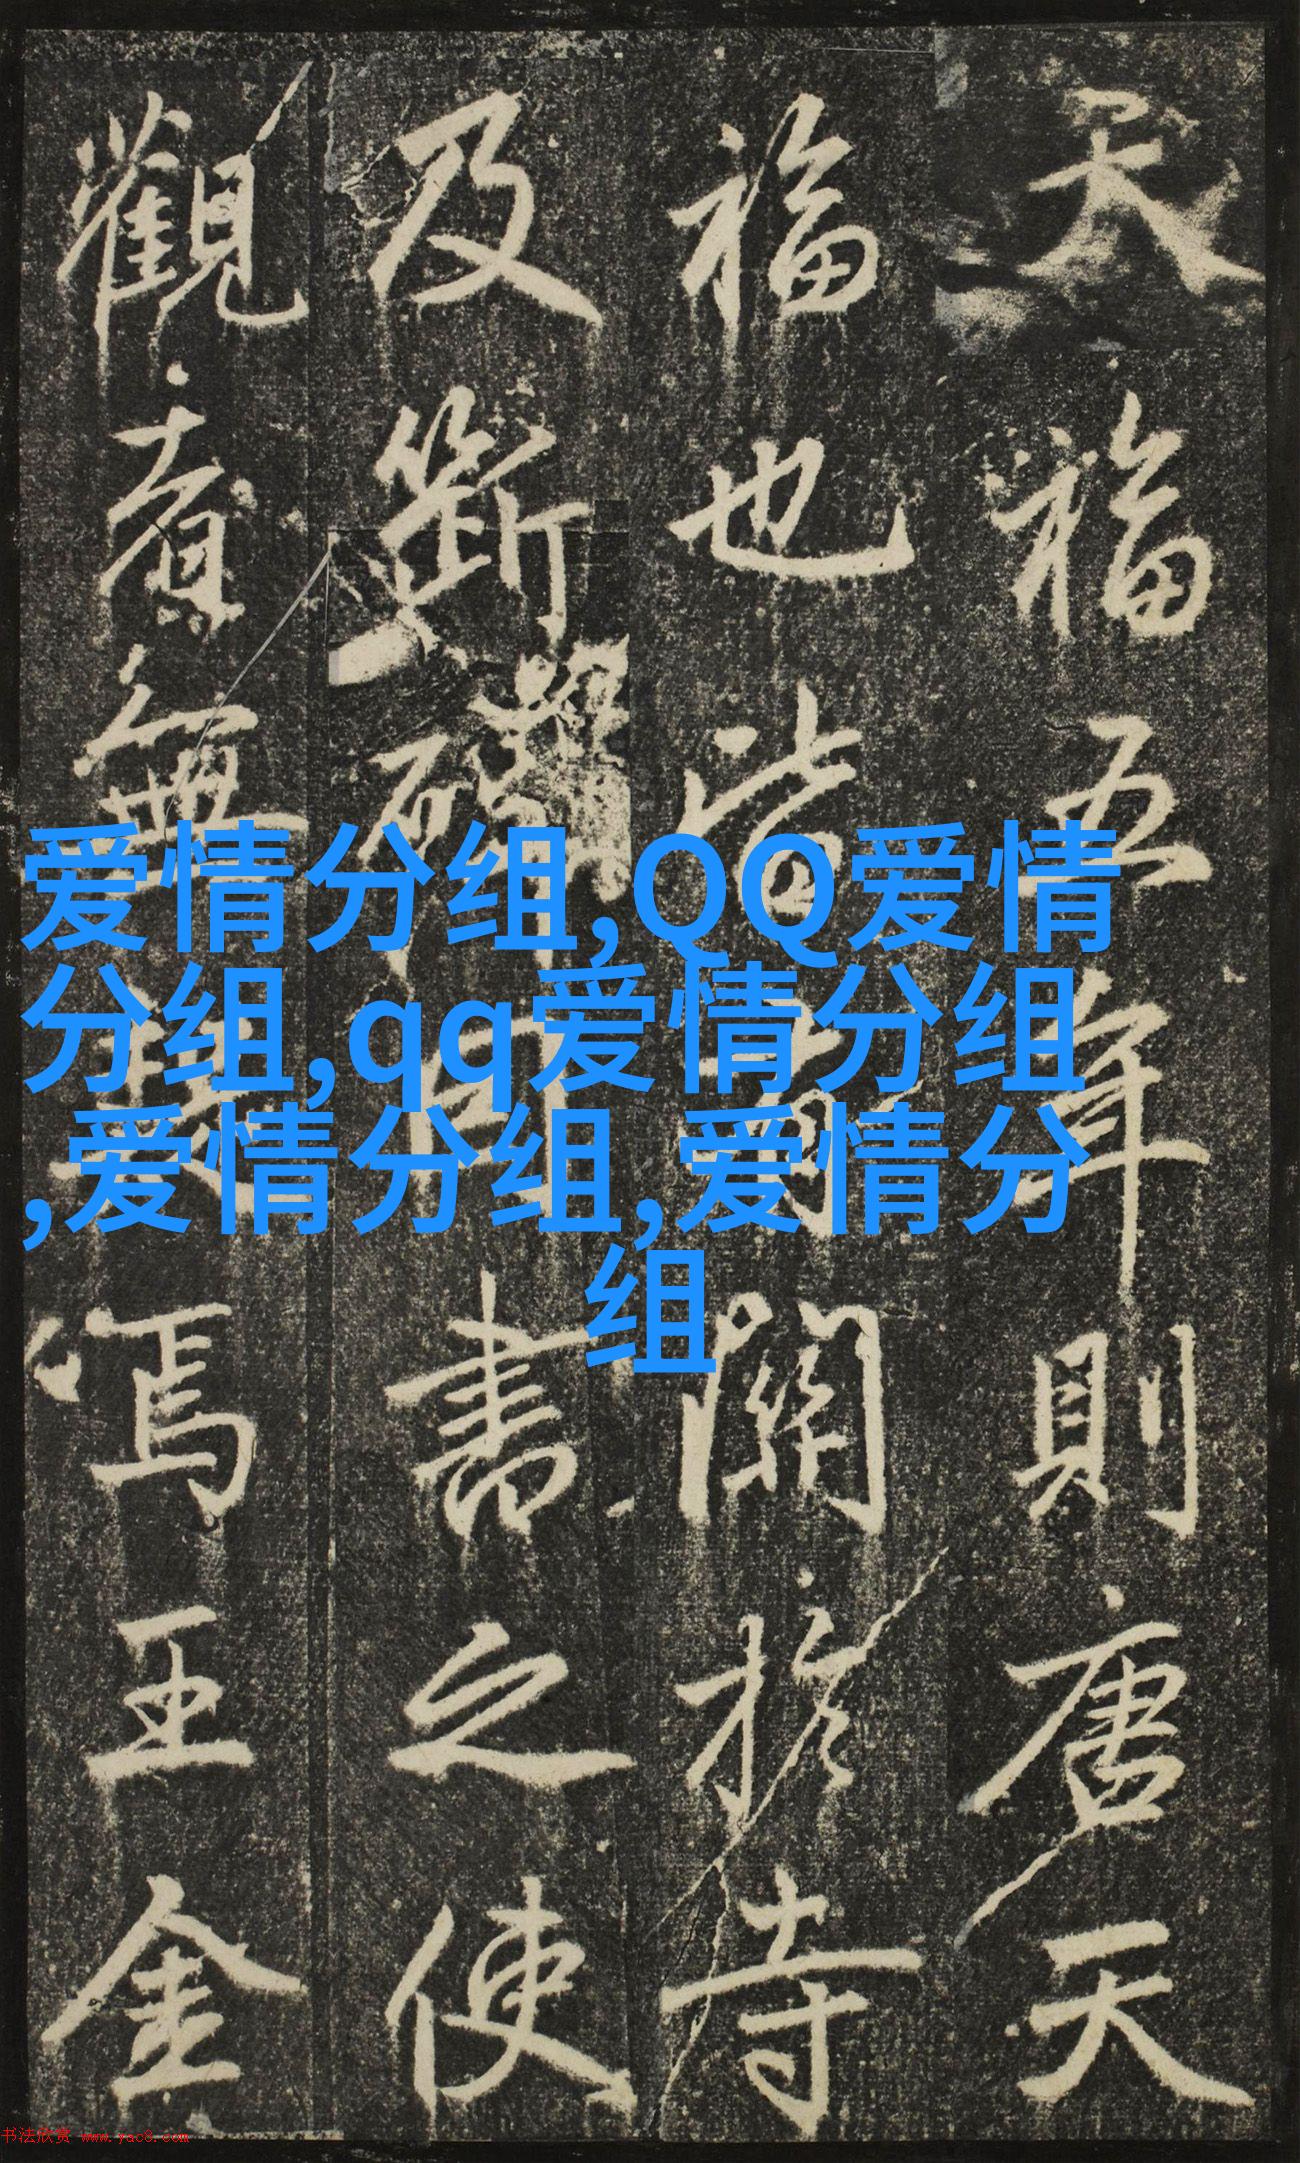 天福五年則唐天
福也皆有關於寺
及斷碑口書之使
觀音無是寫王金
爱情分组,QQ爱情
分组,qq爱情分组
,爱情分组,爱情分
组
书法欣赏 www.yac8.com